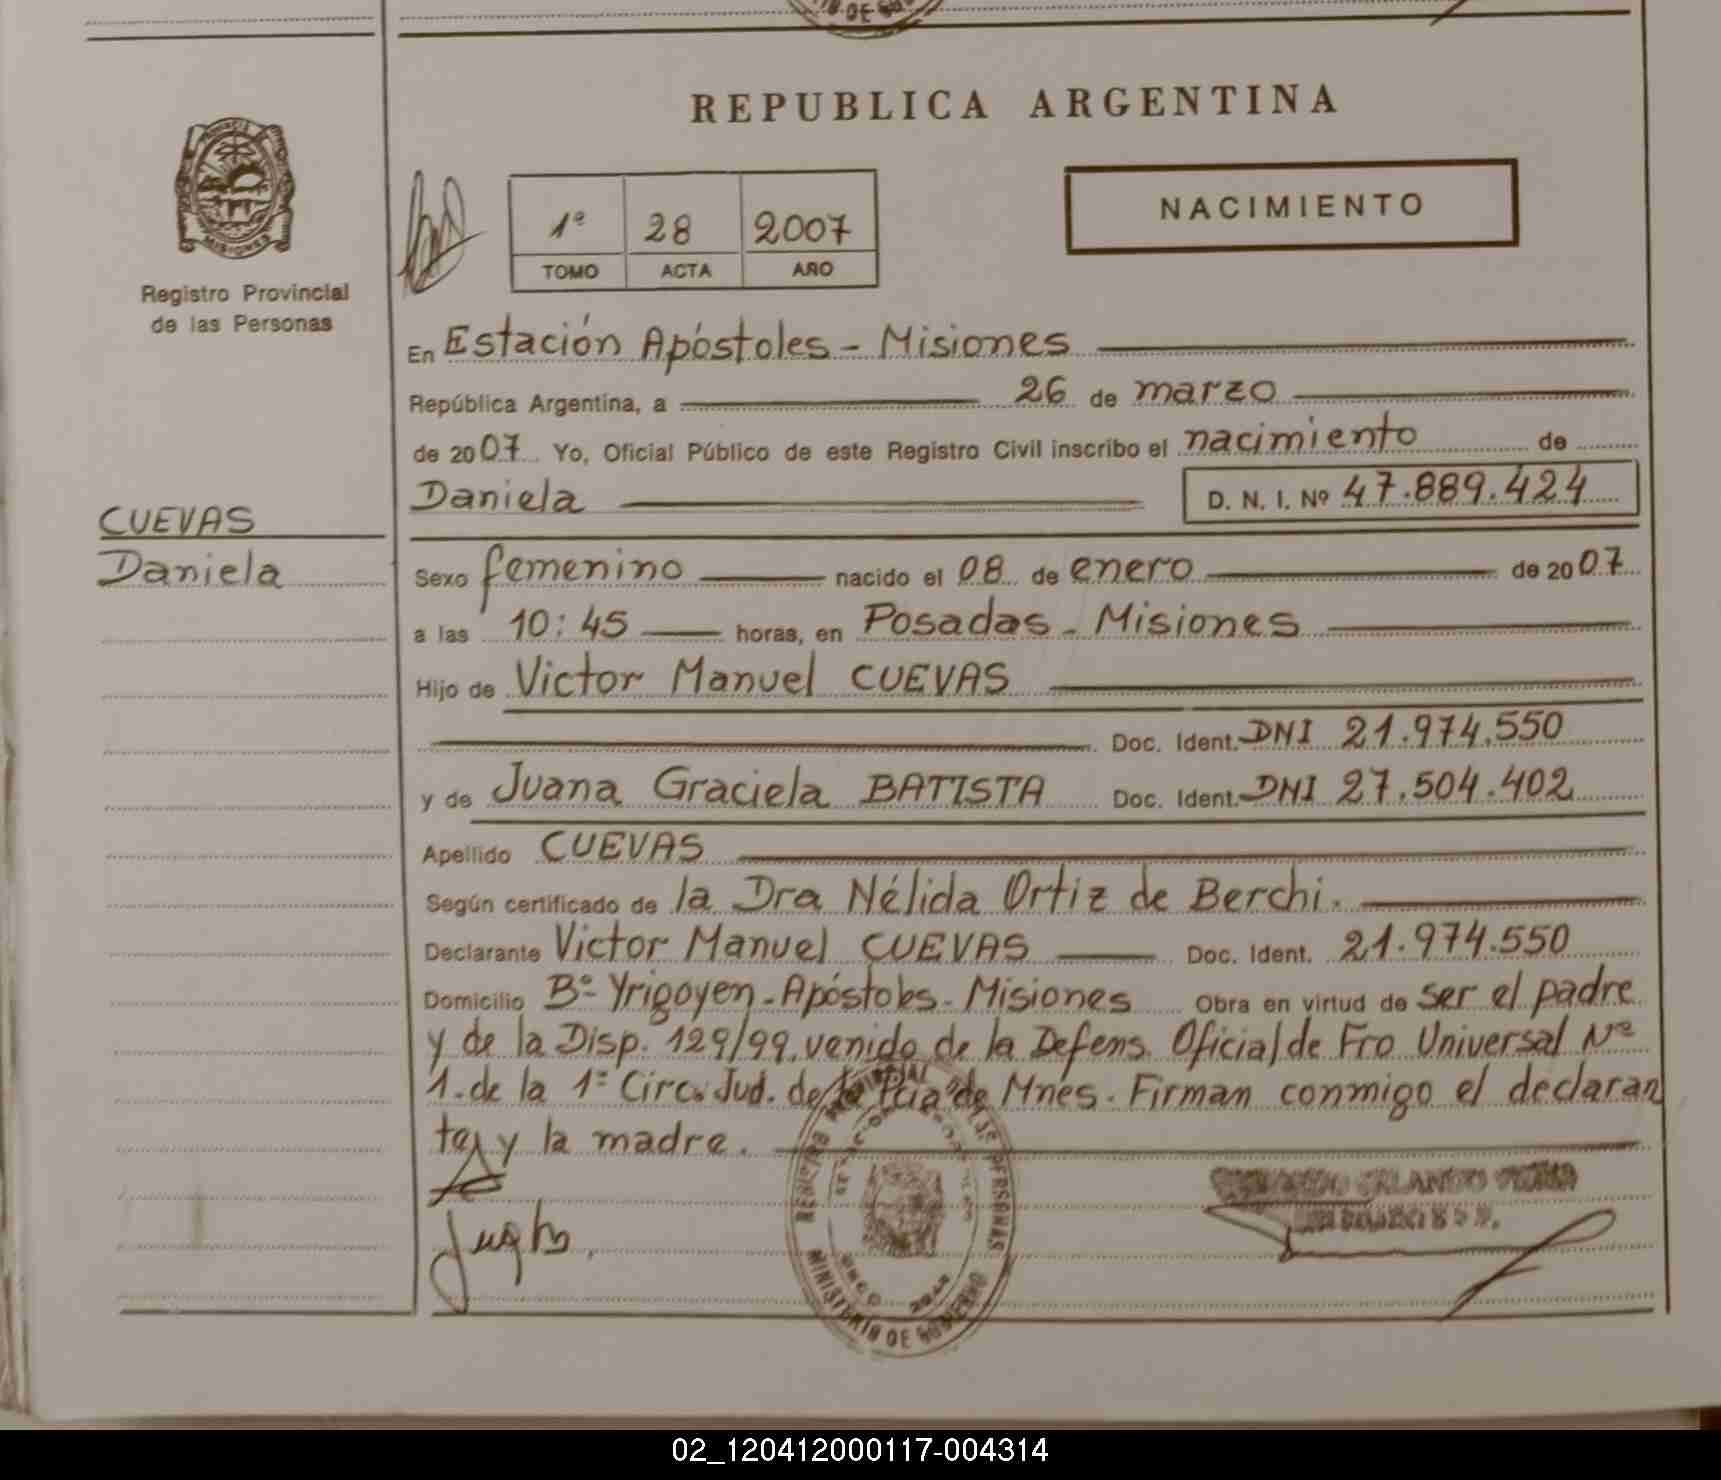 REPUBLICA ARGENTINA
NACIMIENTO
1º 28 2007
TOMO ACTA AÑO
MISIONES
Registro Provincial
de las Personas
En Estación Apóstoles - Misiones
República Argentina, a 26 de marzo
de 2007 Yo, Oficial Público de este Registro Civil inscribo el nacimiento de
Daniela D. N. I. Nº 47.889.424
CUEVAS
Daniela
Sexo femenino nacido el 08 de enero de 2007
a las 10:45 horas, en Posadas - Misiones
Hijo de Victor Manuel CUEVAS
Doc. Ident. DNI 21.974.550
y de Juana Graciela BATISTA Doc. Ident. DNI 27.504.402
Apellido CUEVAS
Según certificado de la Dra Nélida Ortiz de Berchi.
Declarante Victor Manuel CUEVAS Doc. Ident. 21.974.550
Domicilio Bº Yrigoyen - Apóstoles - Misiones Obra en virtud de ser el padre
y de la Disp. 129/99. venido de la Defens. Oficial de Fro Universal Nº
1. de la 1º Circ. Jud. de la Pcia de Mnes. Firman conmigo el declaran
te y la madre.
MINISTERIO DE GOBIERNO
02_120412000117-004314